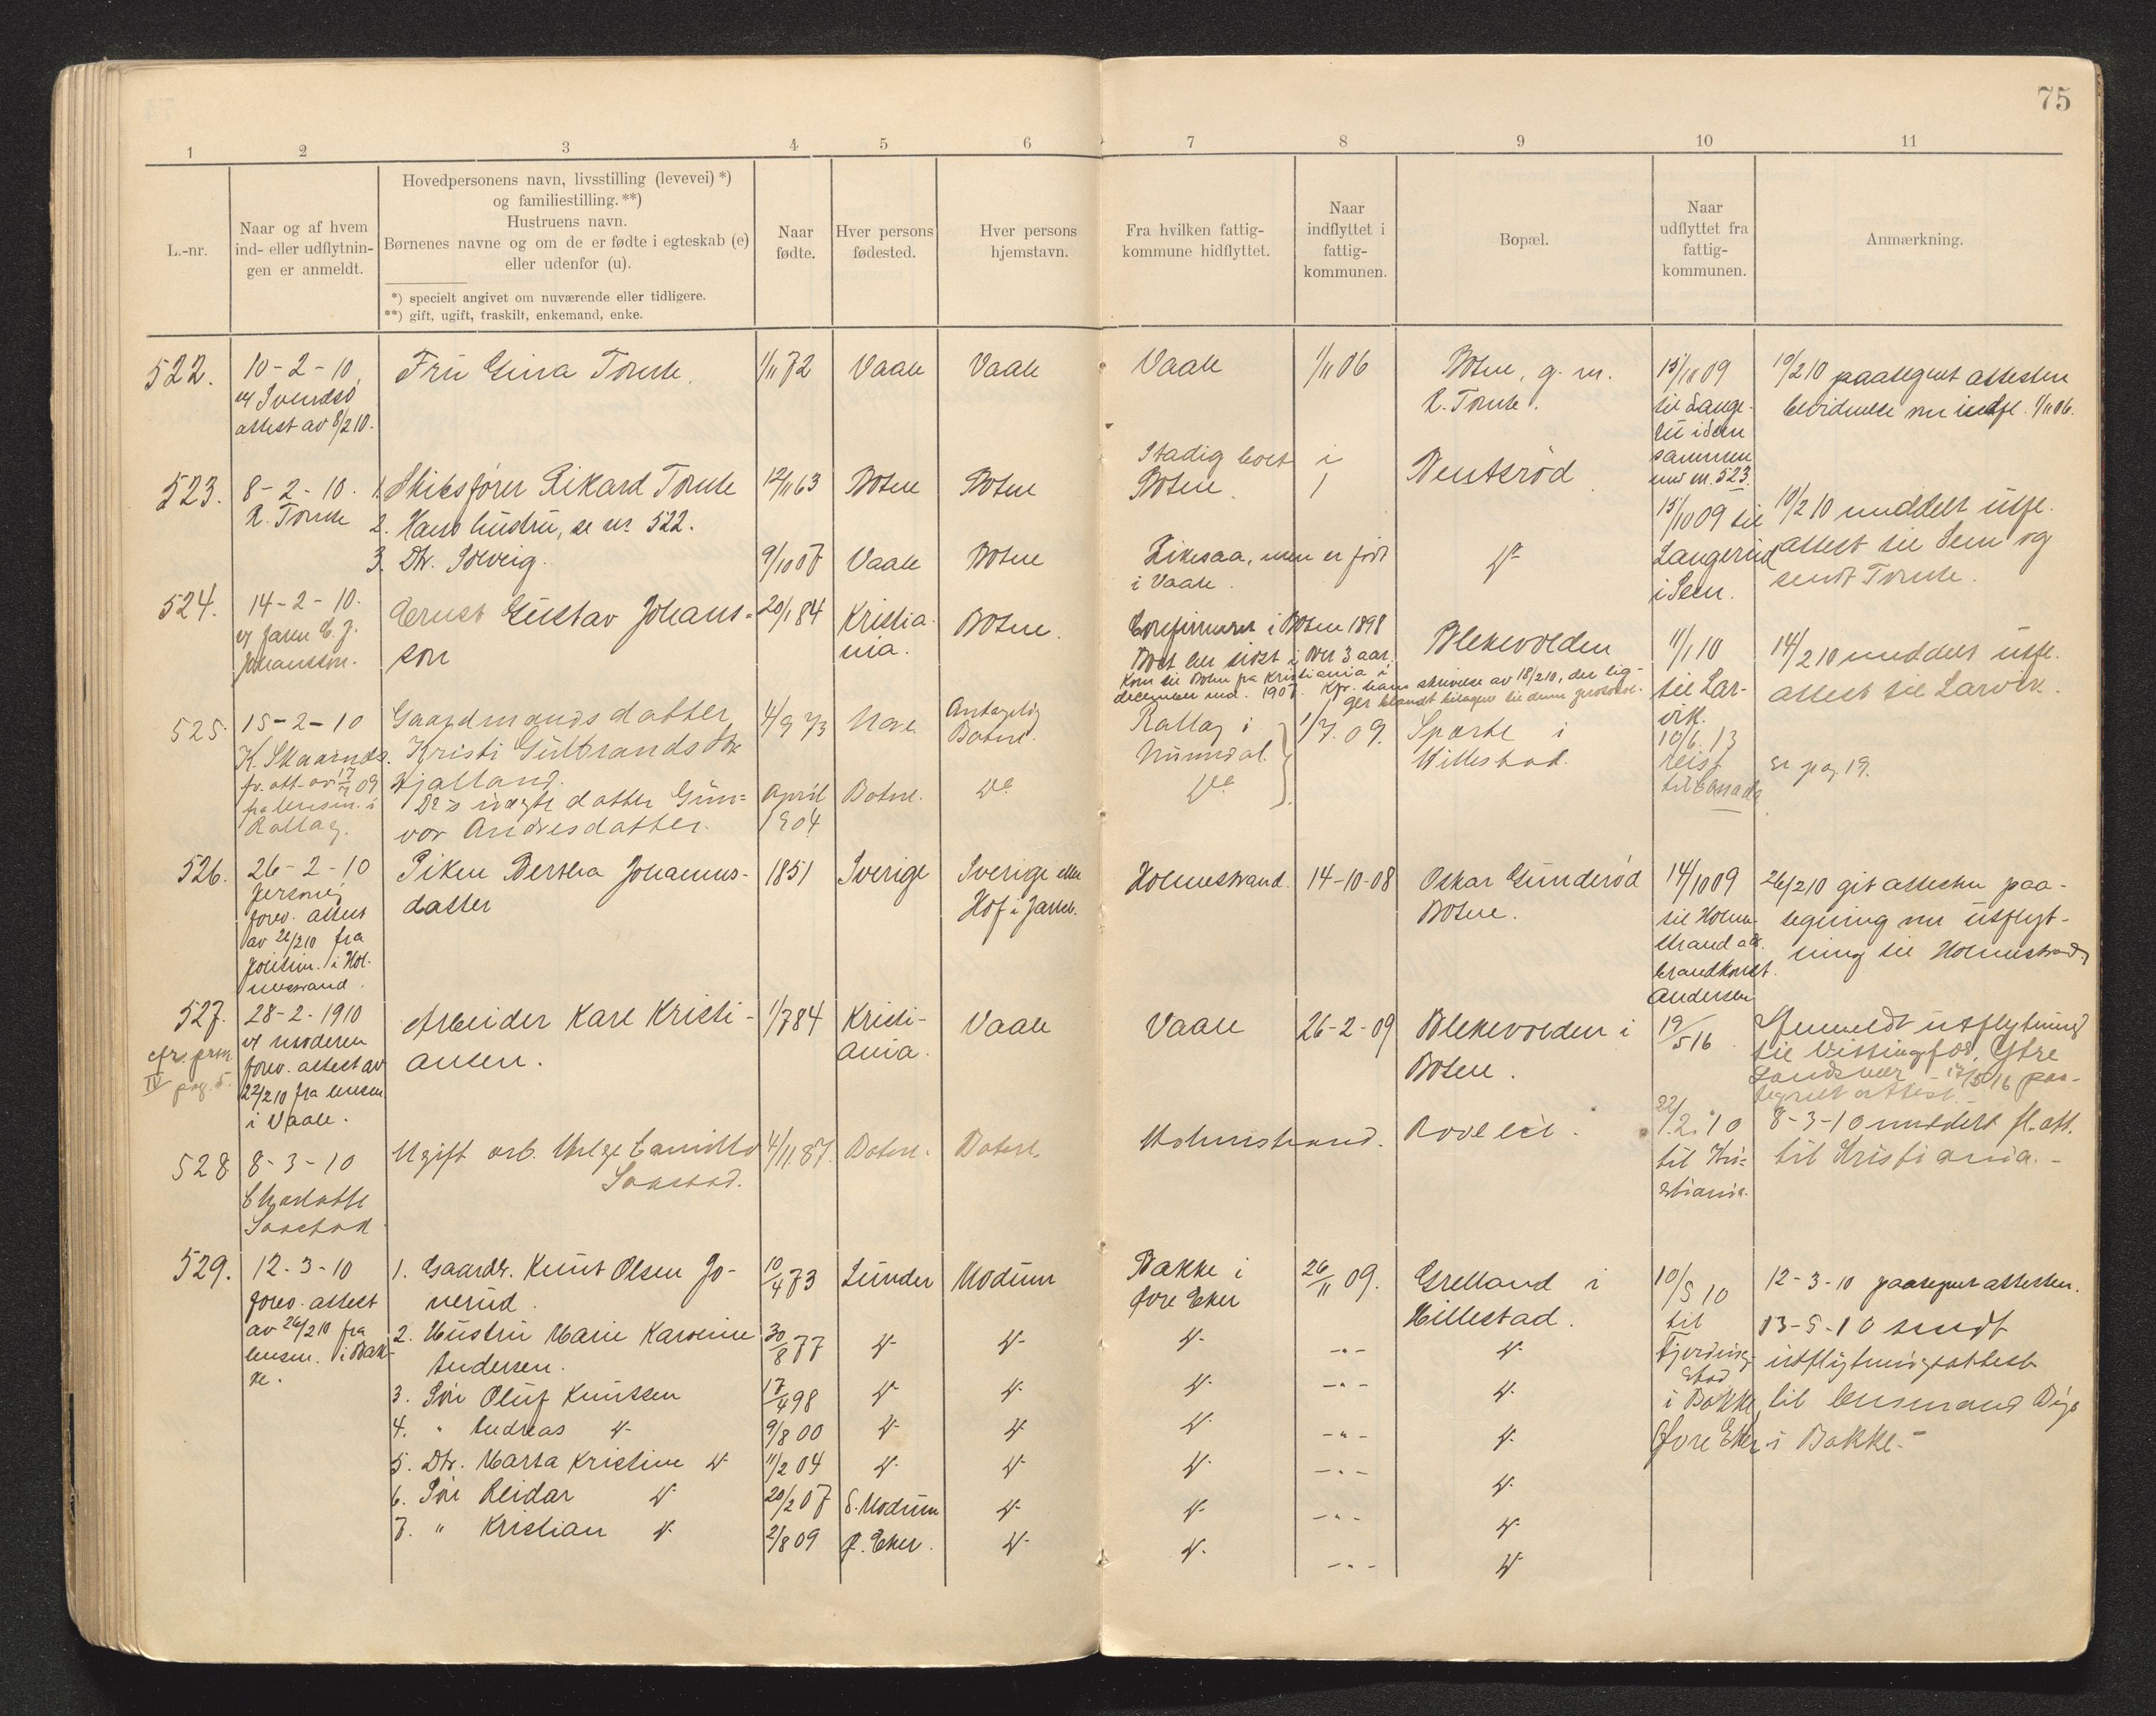 75
1 2 3 4 5 6 7 8 9 10 11
L.-nr.
Naar og af hvem
ind- eller udflytnin-
gen er anmeldt.
Hovedpersonens navn, livsstilling (levevei) *)
og familiestilling. **)
Hustruens navn.
Børnenes navne og om de er fødte i egteskab (e)
eller udenfor (u).
*) specielt angivet om nuværende eller tidligere.
**) gift, ugift, fraskilt, enkemand, enke.
Naar
fødte.
Hver persons
fødested.
Hver persons
hjemstavn.
Fra hvilken fattig-
kommune hidflyttet.
Naar
indflyttet i
fattig-
kommunen.
Bopæl.
Naar
udflyttet fra
fattig-
kommunen.
Anmærkning.
522.
10-2-10
attest av 8/2 10.
Fru Gina Tomte.
1/11 72
Vaale
Vaale
Vaale
1/11 06
Botne, g. m.
R. Tomte.
15/10 09
til Lange-
rud i Sem
sammen
med nr. 523.
10/2 10 paategnet attesten
bevidnelse om indfl. 1/11 06.
523.
8-2-10.
R. Tomte
1. Skibsfører Rikard Tomte
2. Hans hustru, se nr 522.
3. Dtr. Solveig.
12/11 63
9/10 07
Botne
Vaale
Botne
Botne
Stadig boet i
Botne.
Likesaa, men er født
i Vaale.
Bentsrød
15/10 09 til
Langerud
i Sem.
10/2 10 meddelt utfl.
attest til Sem og
sendt Tomte.
524.
14-2-10.
v/ faren E. J.
Johansson.
Ernst Gustav Johans-
son
20/1 84
Kristia-
nia.
Botne.
Confirmeret i Botne 1898
Boet her sidst i over 3 aar.
Kom til Botne fra Kristiania i
december md. 1907. Kfr. hans skrivelse av 18/2 10, der lig-
ger blandt bilagene til denne protokol.
Blekevolden
11/1 10
til Lar-
vik.
14/2 10 meddelt utfl.
attest til Larvik.
525.
15-2-10
K. Skaarnds.
fra lensm. i
Rollag.
Gaardmandsdatter
Kristi Gulbrandsdtr
Hjalland.
Ds uægte datter Gun-
vor Andresdatter.
4/9 73
April
1904
Nore.
Botne.
Antagelig
Botne.
Do
Rollag i
Numedal.
Do
1/7. 09.
Sparte i
Hillestad.
10/6. 13
reist
til Canada
se pag 19.
526.
26-2-10
personlig
forev. attest
av 26/2 10 fra
politim. i Hol-
mestrand.
Piken Bertha Johannes-
datter
1851
Sverige
Sverige eller
Hof i Jarlsb.
Holmestrand.
14-10-08
Oskar Gunderød
Botne.
14/10 09
til Holme-
strand adr.
brandkonst.
Andersen
26/2 10 git attesten paa-
tegning om utflyt-
ning til Holmestrand
527.
cfr. prm.
IV pag. 5.
28-2-1910
v/ moderen
forev. attest av
22/2 10 fra lensm.
i Vaale.
Arbeider Karl Kristi-
ansen.
1/7 84
Kristi-
ania.
Vaale
Vaale
26-2-09
Blekevolden i
Botne.
19/5 16
Anmeldt utflytning
528
8-3-10
Charlotte
Saastad
Ugift arb. Helge Camillo
Saastad.
4/11. 87.
Botne.
Botne
Holmestrand.
22/2. 10
til Kri-
stiania.
8-3-10 meddelt fl. att.
til Kristiania.-
529.
12-3-10
forev. attest
av 26/2 10 fra
lensm. i Bak-
ke.
1. Gaardbr. Knut Olsen Jo-
nerud.
2. Hustru Marie Karoline
Andersen.
3. Søn Oluf Knutsen
4. " Andreas do
5. Dtr. Marta Kristine do
6. Søn Reidar do
7. " Kristian do
10/4 73
30/8 77
17/4 98
9/8 00
11/2 04
20/2 07
2/8 09
Lunder
do
do
do
do
S. Modum
Ø. Eker.
Modum
do
do
do
do
do
do
Bakke i
Øvre Eker
do
do
do
do
do
do
26/11 09.
-"-
-"-
-"-
-"-
-"-
-"-
Grelland i
Hillestad.
do
do
do
do
do
do
10/5 10
til
Fjerding-
stad
i Bakke,
Øvre Eker
12-3-10 paategnet attesten.
13-5-10 sendt
utflytningsattest
til lensmand
i Bakke.-